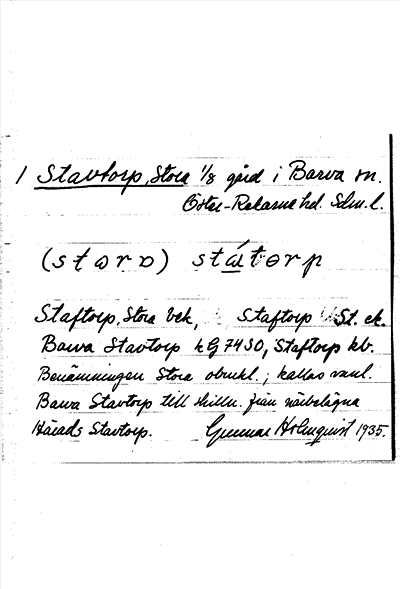 1 Stavtorp, Stora 1/8 gård i Barva sn.
Öster-Rekarne hd. Sdm. l.
(stora) státorp
Staftorp, Stora bek, Staftorp St. ek.
Barva Stavtorp hG 7430, Staftorp kb.
Benämningen Stora obrukl.; kallas vanl.
Barva Stavtorp till skilln. från närbelägna
Härads Stavtorp. Gunnar Holmquist 1935.